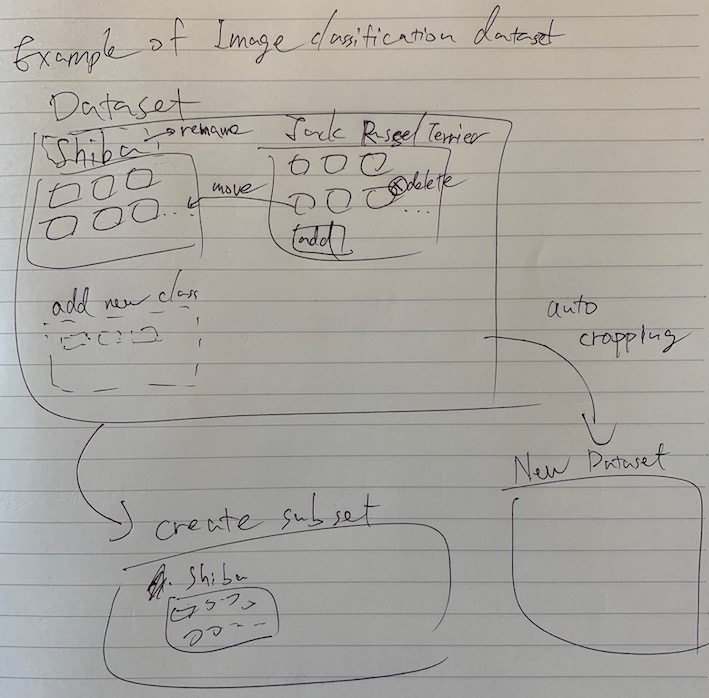 Example of Image classification dataset
Dataset
Shiba
rename
Jack Russel Terrier
move
delete
...
...
add
add new class
auto
cropping
New Dataset
create subset
Shiba